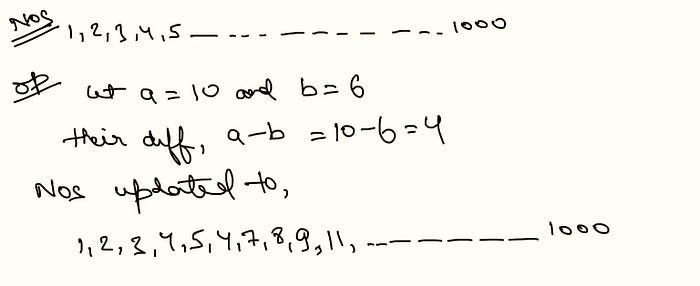 Nos 1, 2, 3, 4, 5 — - - - — — — — — - - . 1000
OP let a = 10 and b = 6
their diff, a-b = 10-6 = 4
Nos updated to,
1, 2, 3, 4, 5, 4, 7, 8, 9, 11, - - — — — — — 1000